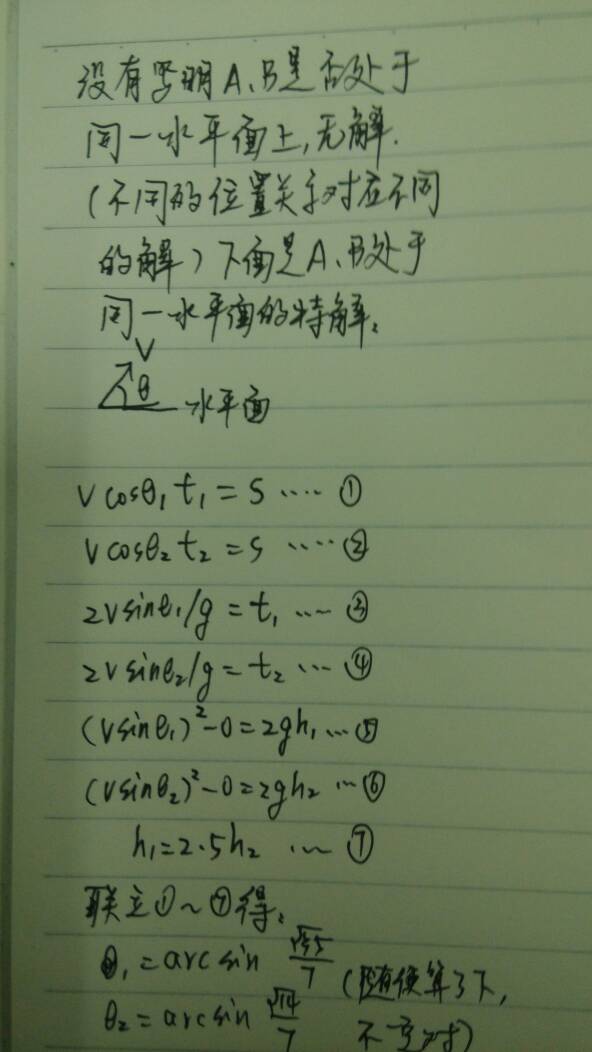 没有写明A、B是否处于
同一水平面上,无解.
(不同的位置关系对应不同
的解)下面是A、B处于
同一水平面的特解:
V
θ 水平面
Vcosθ₁t₁=S ···· ①
Vcosθ₂t₂=S ···· ②
2Vsinθ₁/g=t₁ ···· ③
2Vsinθ₂/g=t₂ ··· ④
(Vsinθ₁)²-0=2gh₁ ··· ⑤
(Vsinθ₂)²-0=2gh₂ ··· ⑥
h₁=2.5h₂ ··· ⑦
联立①~⑦得:
θ₁=arcsin √35/7 (随便算了下,
θ₂=arcsin √14/7 不一定对)